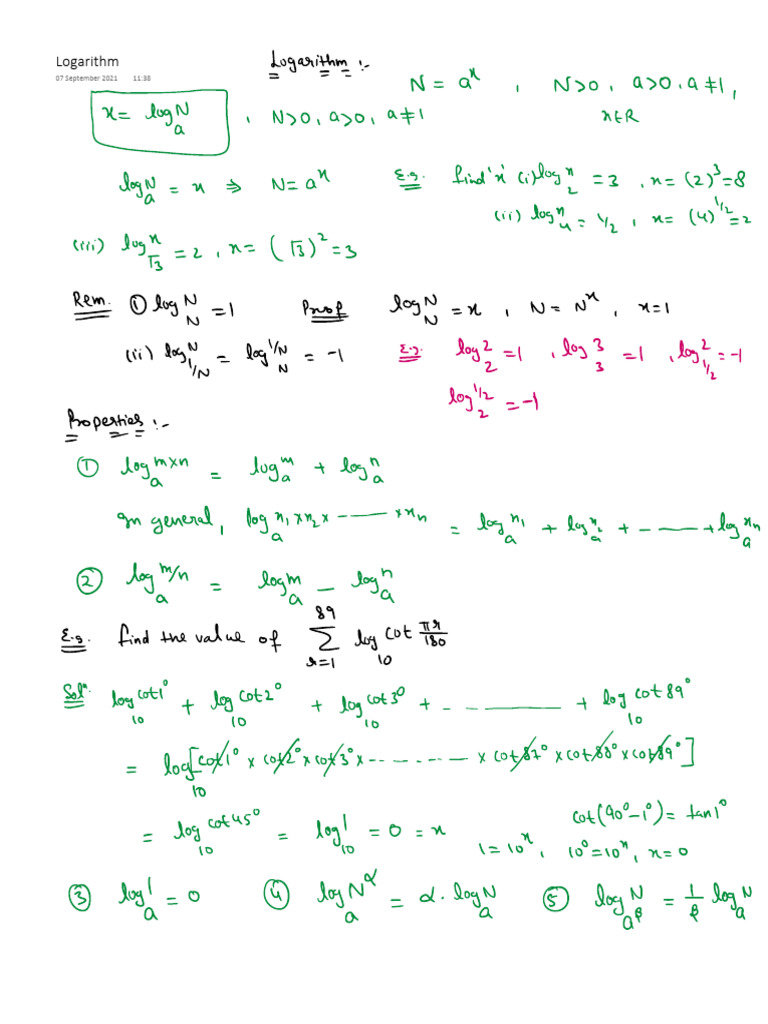 Logarithm
07 September 2021 11:38
Logarithm :-
N = a^x , N>0, a>0, a≠1,
x∈R
x = log_a N , N>0, a>0, a≠1
log_a N = x ⇒ N = a^x
E.g. find 'x' (i) log_2 x = 3 , x = (2)^3 = 8
(ii) log_4 x = 1/2 , x = (4)^{1/2} = 2
(iii) log_{√3} x = 2 , x = (√3)^2 = 3
Rem. ① log_N N = 1 Proof log_N N = x , N = N^x , x = 1
(ii) log_{1/N} N = log_N 1/N = -1 E.g. log_2 2 = 1 , log_3 3 = 1 , log_{1/2} 2 = -1
log_2 1/2 = -1
Properties :-
① log_a m×n = log_a m + log_a n
In general, log_a x_1 × x_2 × ------ × x_n = log_a x_1 + log_a x_2 + ------ + log_a x_n
② log_a m/n = log_a m - log_a n
E.g. find the value of ∑_{r=1}^{89} log_10 cot πr/180
Solⁿ log_10 cot1° + log_10 cot2° + log_10 cot3° + - ------ + log_10 cot89°
= log_10 [cot1° × cot2° × cot3° × ------ × cot87° × cot88° × cot89°]
= log_10 cot45° = log_10 1 = 0 = x
cot(90°-1°) = tan1°
1 = 10^x , 10^0 = 10^x , x = 0
③ log_a 1 = 0 ④ log_a N^α = α. log_a N ⑤ log_{a^β} N = 1/β log_a N